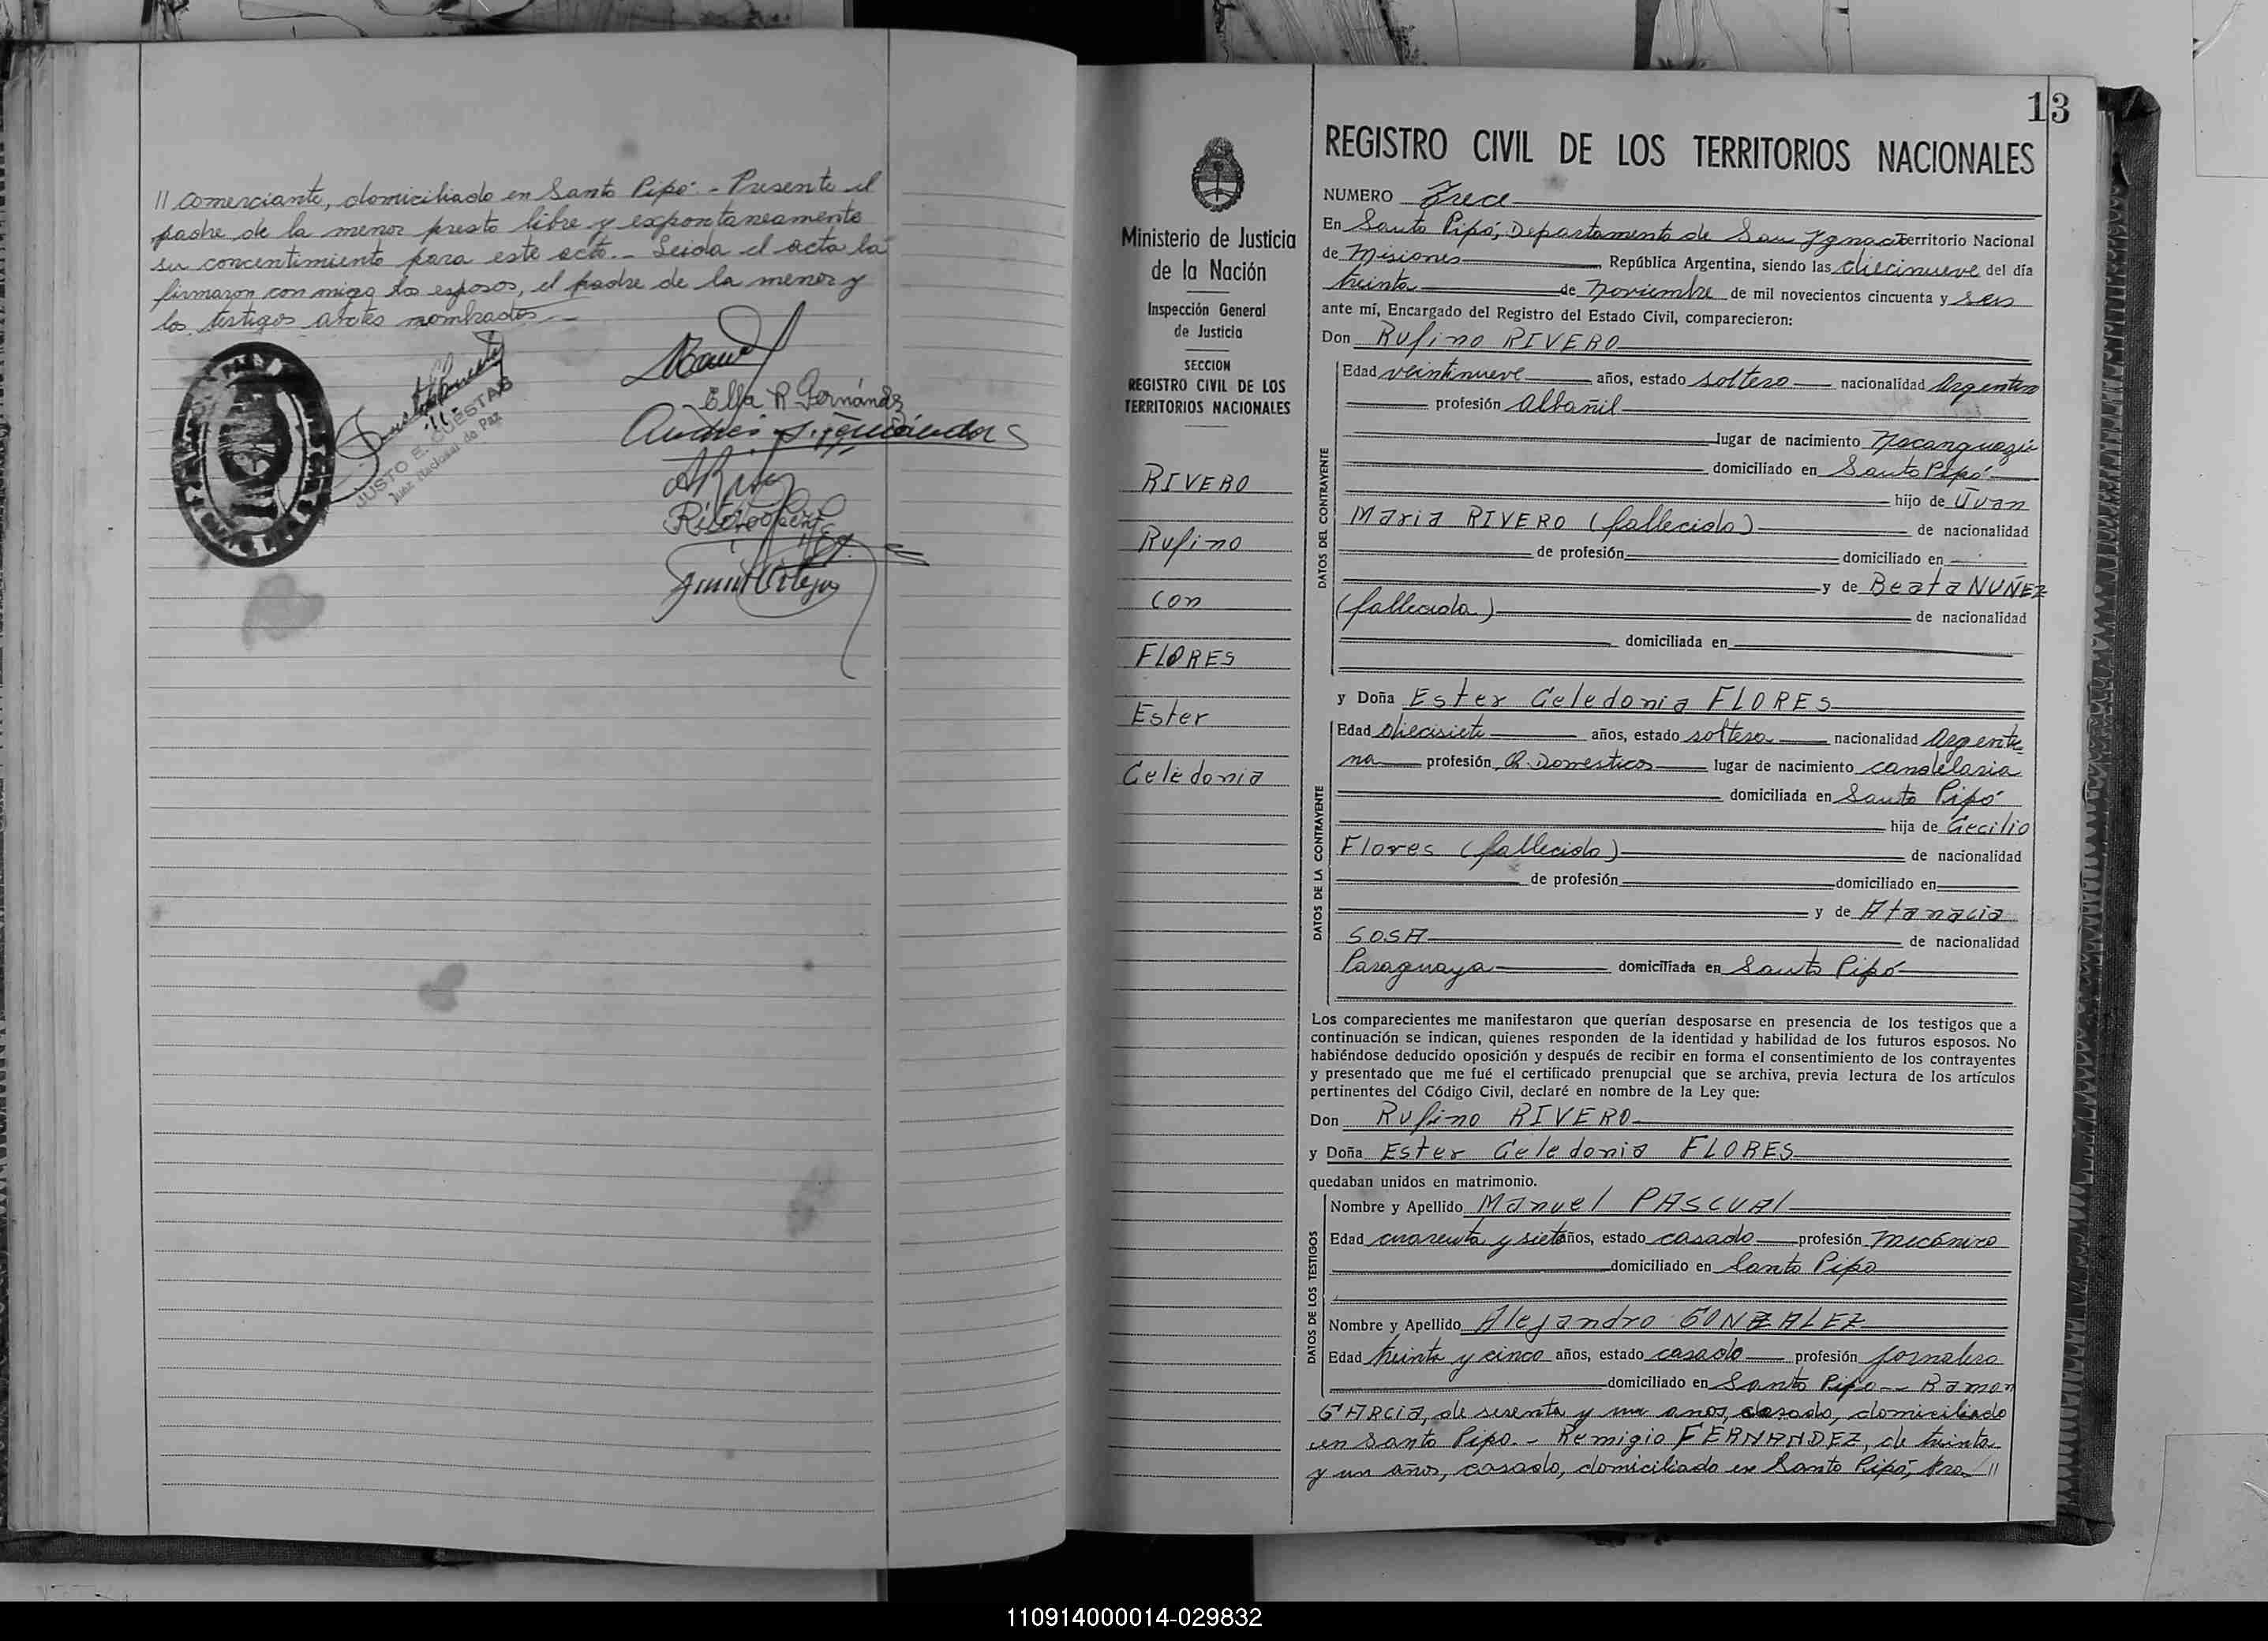 // comerciante, domiciliado en Santo Pipó.- Presente el
padre de la menor presto libre y expontaneamente
su concentimiento para este acto.- Leida el acta la
firmaron con migo los esposos, el padre de la menor y
los testigos antes nombrados
Ella R Fernández
JUSTO E. CUESTAS
Juez Nacional de Paz
13
REGISTRO CIVIL DE LOS TERRITORIOS NACIONALES
Ministerio de Justicia
de la Nación
Inspección General
de Justicia
SECCION
REGISTRO CIVIL DE LOS
TERRITORIOS NACIONALES
RIVERO
Rufino
con
FLORES
Ester
Celedonia
NUMERO Trece
En Santo Pipó, Departamento de San Ygnacio Territorio Nacional
de Misiones, República Argentina, siendo las diecinueve del día
treinta de Noviembre de mil novecientos cincuenta y seis
ante mí, Encargado del Registro del Estado Civil, comparecieron:
Don Rufino RIVERO
DATOS DEL CONTRAYENTE
Edad veintinueve años, estado soltero nacionalidad Argentino
profesión Albañil
lugar de nacimiento Ñacanguazú
domiciliado en Santo Pipó
hijo de Juan
Maria RIVERO (fallecido) de nacionalidad
de profesión domiciliado en
y de Beata NUÑEZ
(fallecida) de nacionalidad
domiciliada en
y Doña Ester Celedonia FLORES
DATOS DE LA CONTRAYENTE
Edad diecisiete años, estado soltera nacionalidad Argenti-
na profesión Q. Domesticos lugar de nacimiento candelaria
domiciliada en Santo Pipó
hija de Cecilio
Flores (fallecido) de nacionalidad
de profesión domiciliado en
y de Atanacia
SOSA de nacionalidad
Paraguaya domiciliada en Santo Pipó
Los comparecientes me manifestaron que querían desposarse en presencia de los testigos que a
continuación se indican, quienes responden de la identidad y habilidad de los futuros esposos. No
habiéndose deducido oposición y después de recibir en forma el consentimiento de los contrayentes
y presentado que me fué el certificado prenupcial que se archiva, previa lectura de los artículos
pertinentes del Código Civil, declaré en nombre de la Ley que:
Don Rufino RIVERO
y Doña Ester Celedonia FLORES
quedaban unidos en matrimonio.
DATOS DE LOS TESTIGOS
Nombre y Apellido Manuel PASCUAL
Edad cuarenta y siete años, estado casado profesión mecánico
domiciliado en Santo Pipo
Nombre y Apellido Alejandro GONZALEZ
Edad treinta y cinco años, estado casado profesión jornalero
domiciliado en Santo Pipo-- Ramon
GARCIA, de sesenta y un anos, casado, domiciliado
en Santo Pipo.- Remigio FERNANDEZ, de treinta
y un años, casado, domiciliado en Santo Pipó, //
110914000014-029832